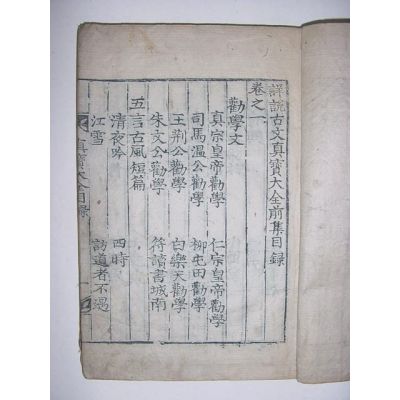 詳說古文真寶大全前集目録
卷之一
勸學文
真宗皇帝勸學 仁宗皇帝勸學
司馬溫公勸學 柳屯田勸學
王荆公勸學 白樂天勸學
朱文公勸學 符讀書城南
五言古風短篇
清夜吟 四時
江雪 訪道者不遇
真寶大全目録